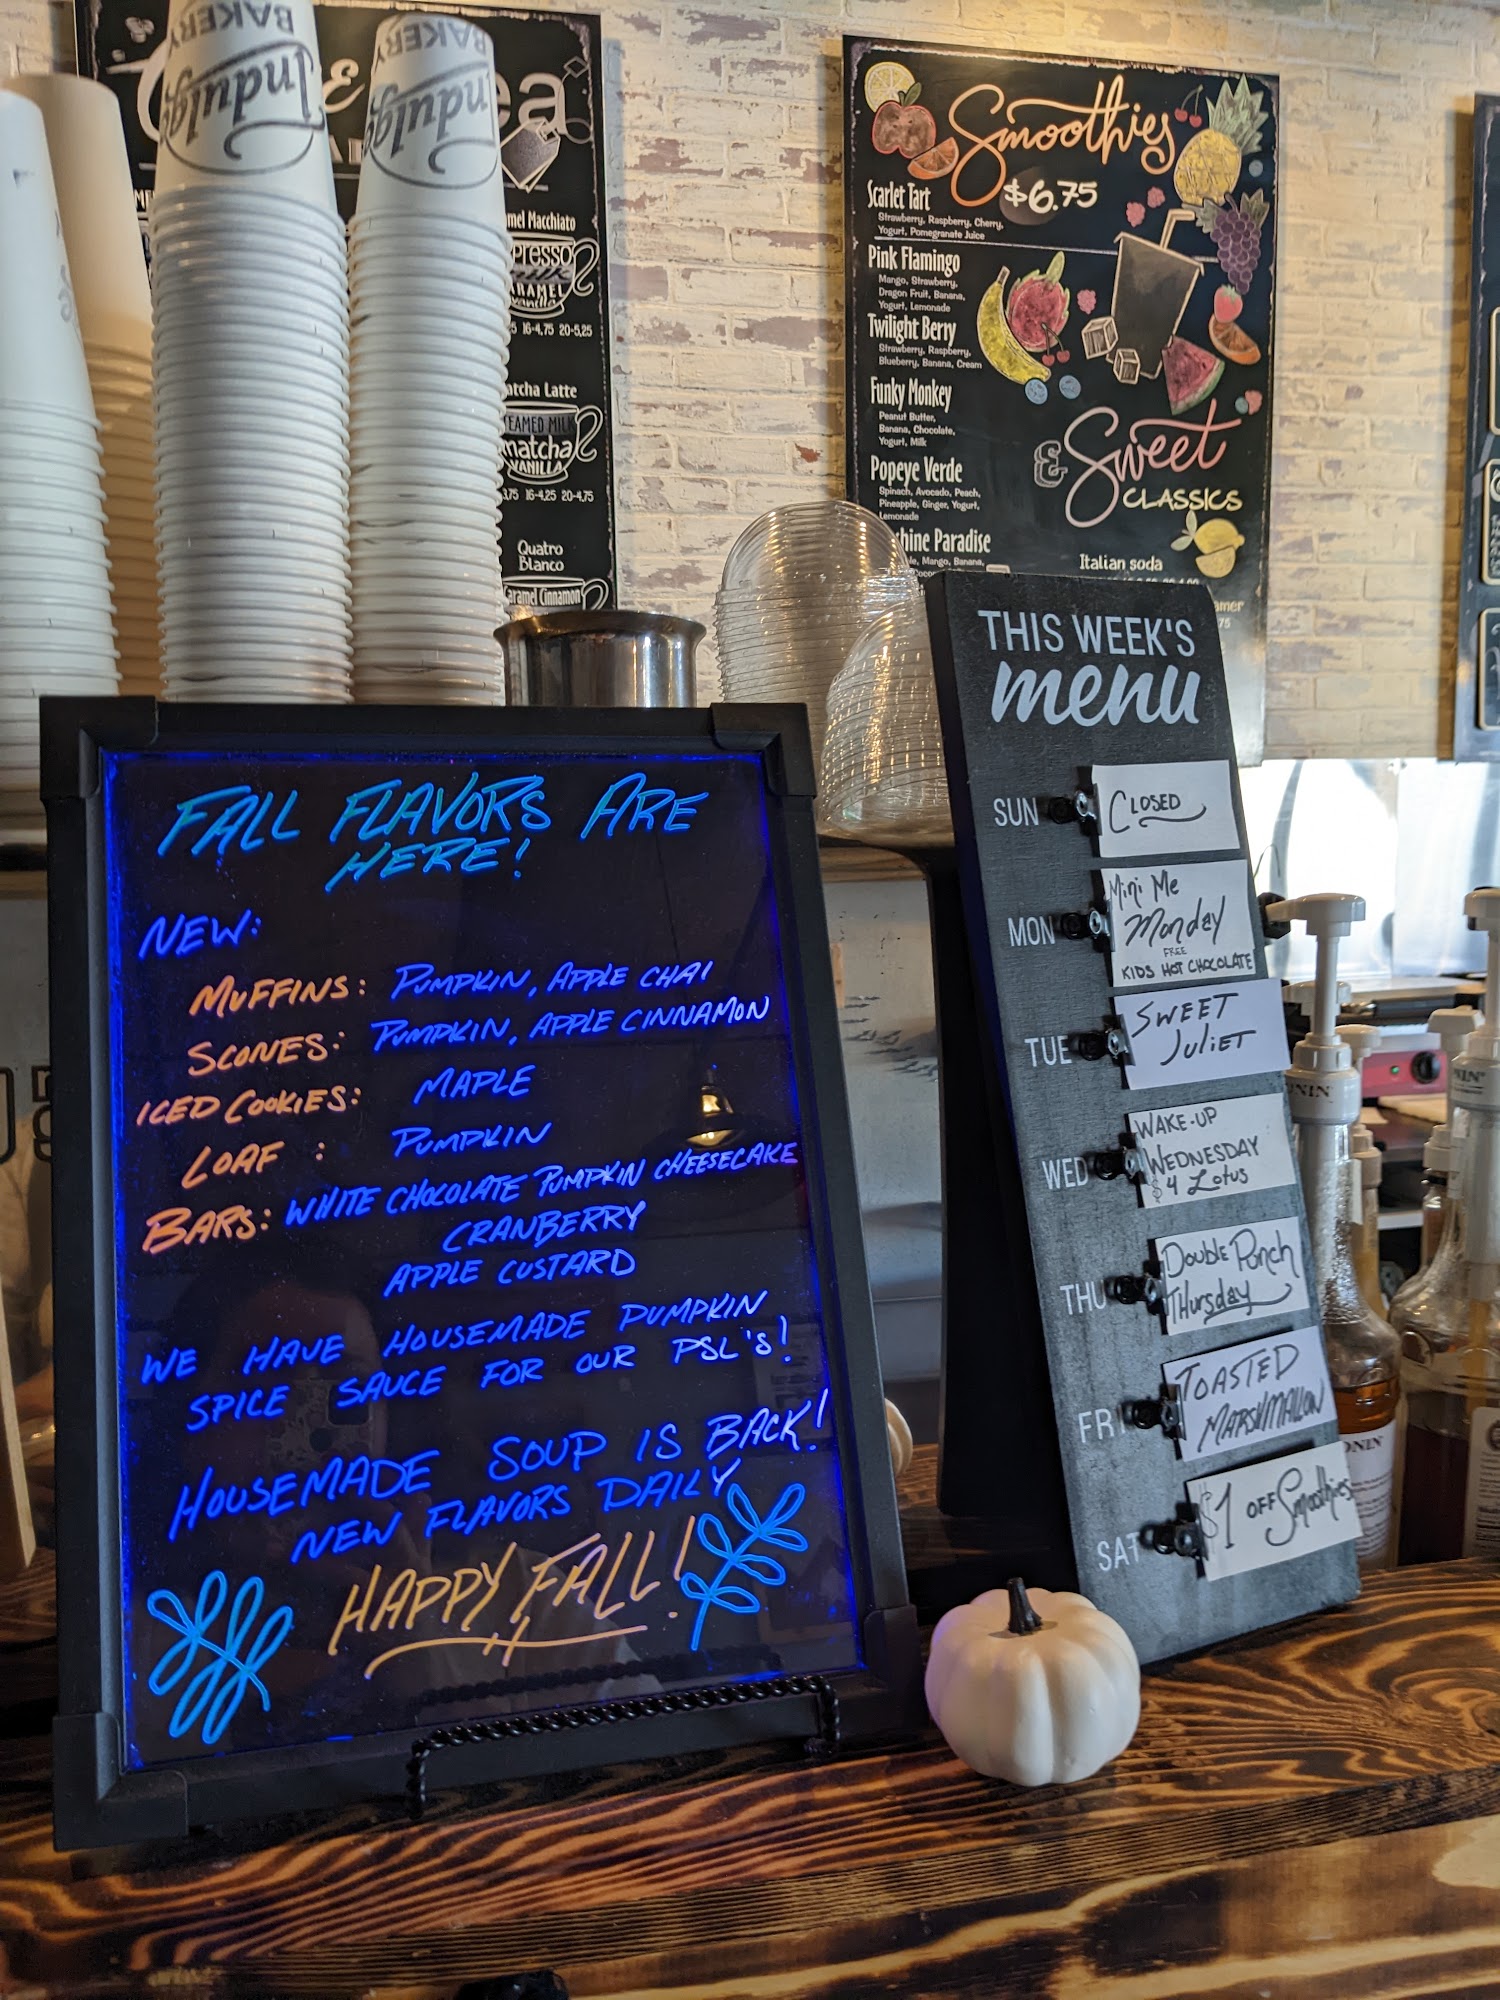 Indulge
BAKERY
Indulge
BAKERY
Macchiato
CARAMEL
vanilla
16-4.75 20-5.25
Latte
STEAMED MILK
matcha
VANILLA
3.75 16-4.25 20-4.75
Quatro
Blanco
Caramel Cinnamon
Smoothies
$6.75
Scarlet Tart
Strawberry, Raspberry, Cherry,
Yogurt, Pomegranate Juice
Pink Flamingo
Mango, Strawberry,
Dragon Fruit, Banana,
Yogurt, Lemonade
Twilight Berry
Strawberry, Raspberry,
Blueberry, Banana, Cream
Funky Monkey
Peanut Butter,
Banana, Chocolate,
Yogurt, Milk
Popeye Verde
Spinach, Avocado, Peach,
Pineapple, Ginger, Yogurt,
Lemonade
Paradise
Mango, Banana,
& Sweet
CLASSICS
Italian soda
THIS WEEK'S
menu
SUN CLOSED
MON Mini Me
Monday
FREE
KIDS HOT CHOCOLATE
TUE SWEET
JULIET
WED WAKE-UP
WEDNESDAY
$4 Lotus
THU Double Punch
Thursday
FRI TOASTED
MARSHMALLOW
SAT $1 OFF Smoothies
FALL FLAVORS ARE
HERE!
NEW:
MUFFINS: PUMPKIN, APPLE CHAI
SCONES: PUMPKIN, APPLE CINNAMON
ICED COOKIES: MAPLE
LOAF : PUMPKIN
BARS: WHITE CHOCOLATE PUMPKIN CHEESECAKE
CRANBERRY
APPLE CUSTARD
WE HAVE HOUSEMADE PUMPKIN
SPICE SAUCE FOR OUR PSL'S!
HOUSEMADE SOUP IS BACK!
NEW FLAVORS DAILY
HAPPY FALL!